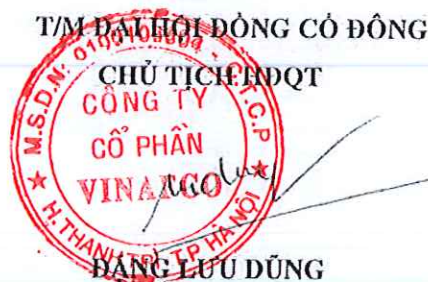 T/M ĐẠI HỘI ĐỒNG CỔ ĐÔNG
CHỦ TỊCH HĐQT
M.S.D.N: - C.T.C.P
CÔNG TY
CỔ PHẦN
VINAFCO
H. THANH TRÌ T.P HÀ NỘI
ĐẶNG LƯU DŨNG